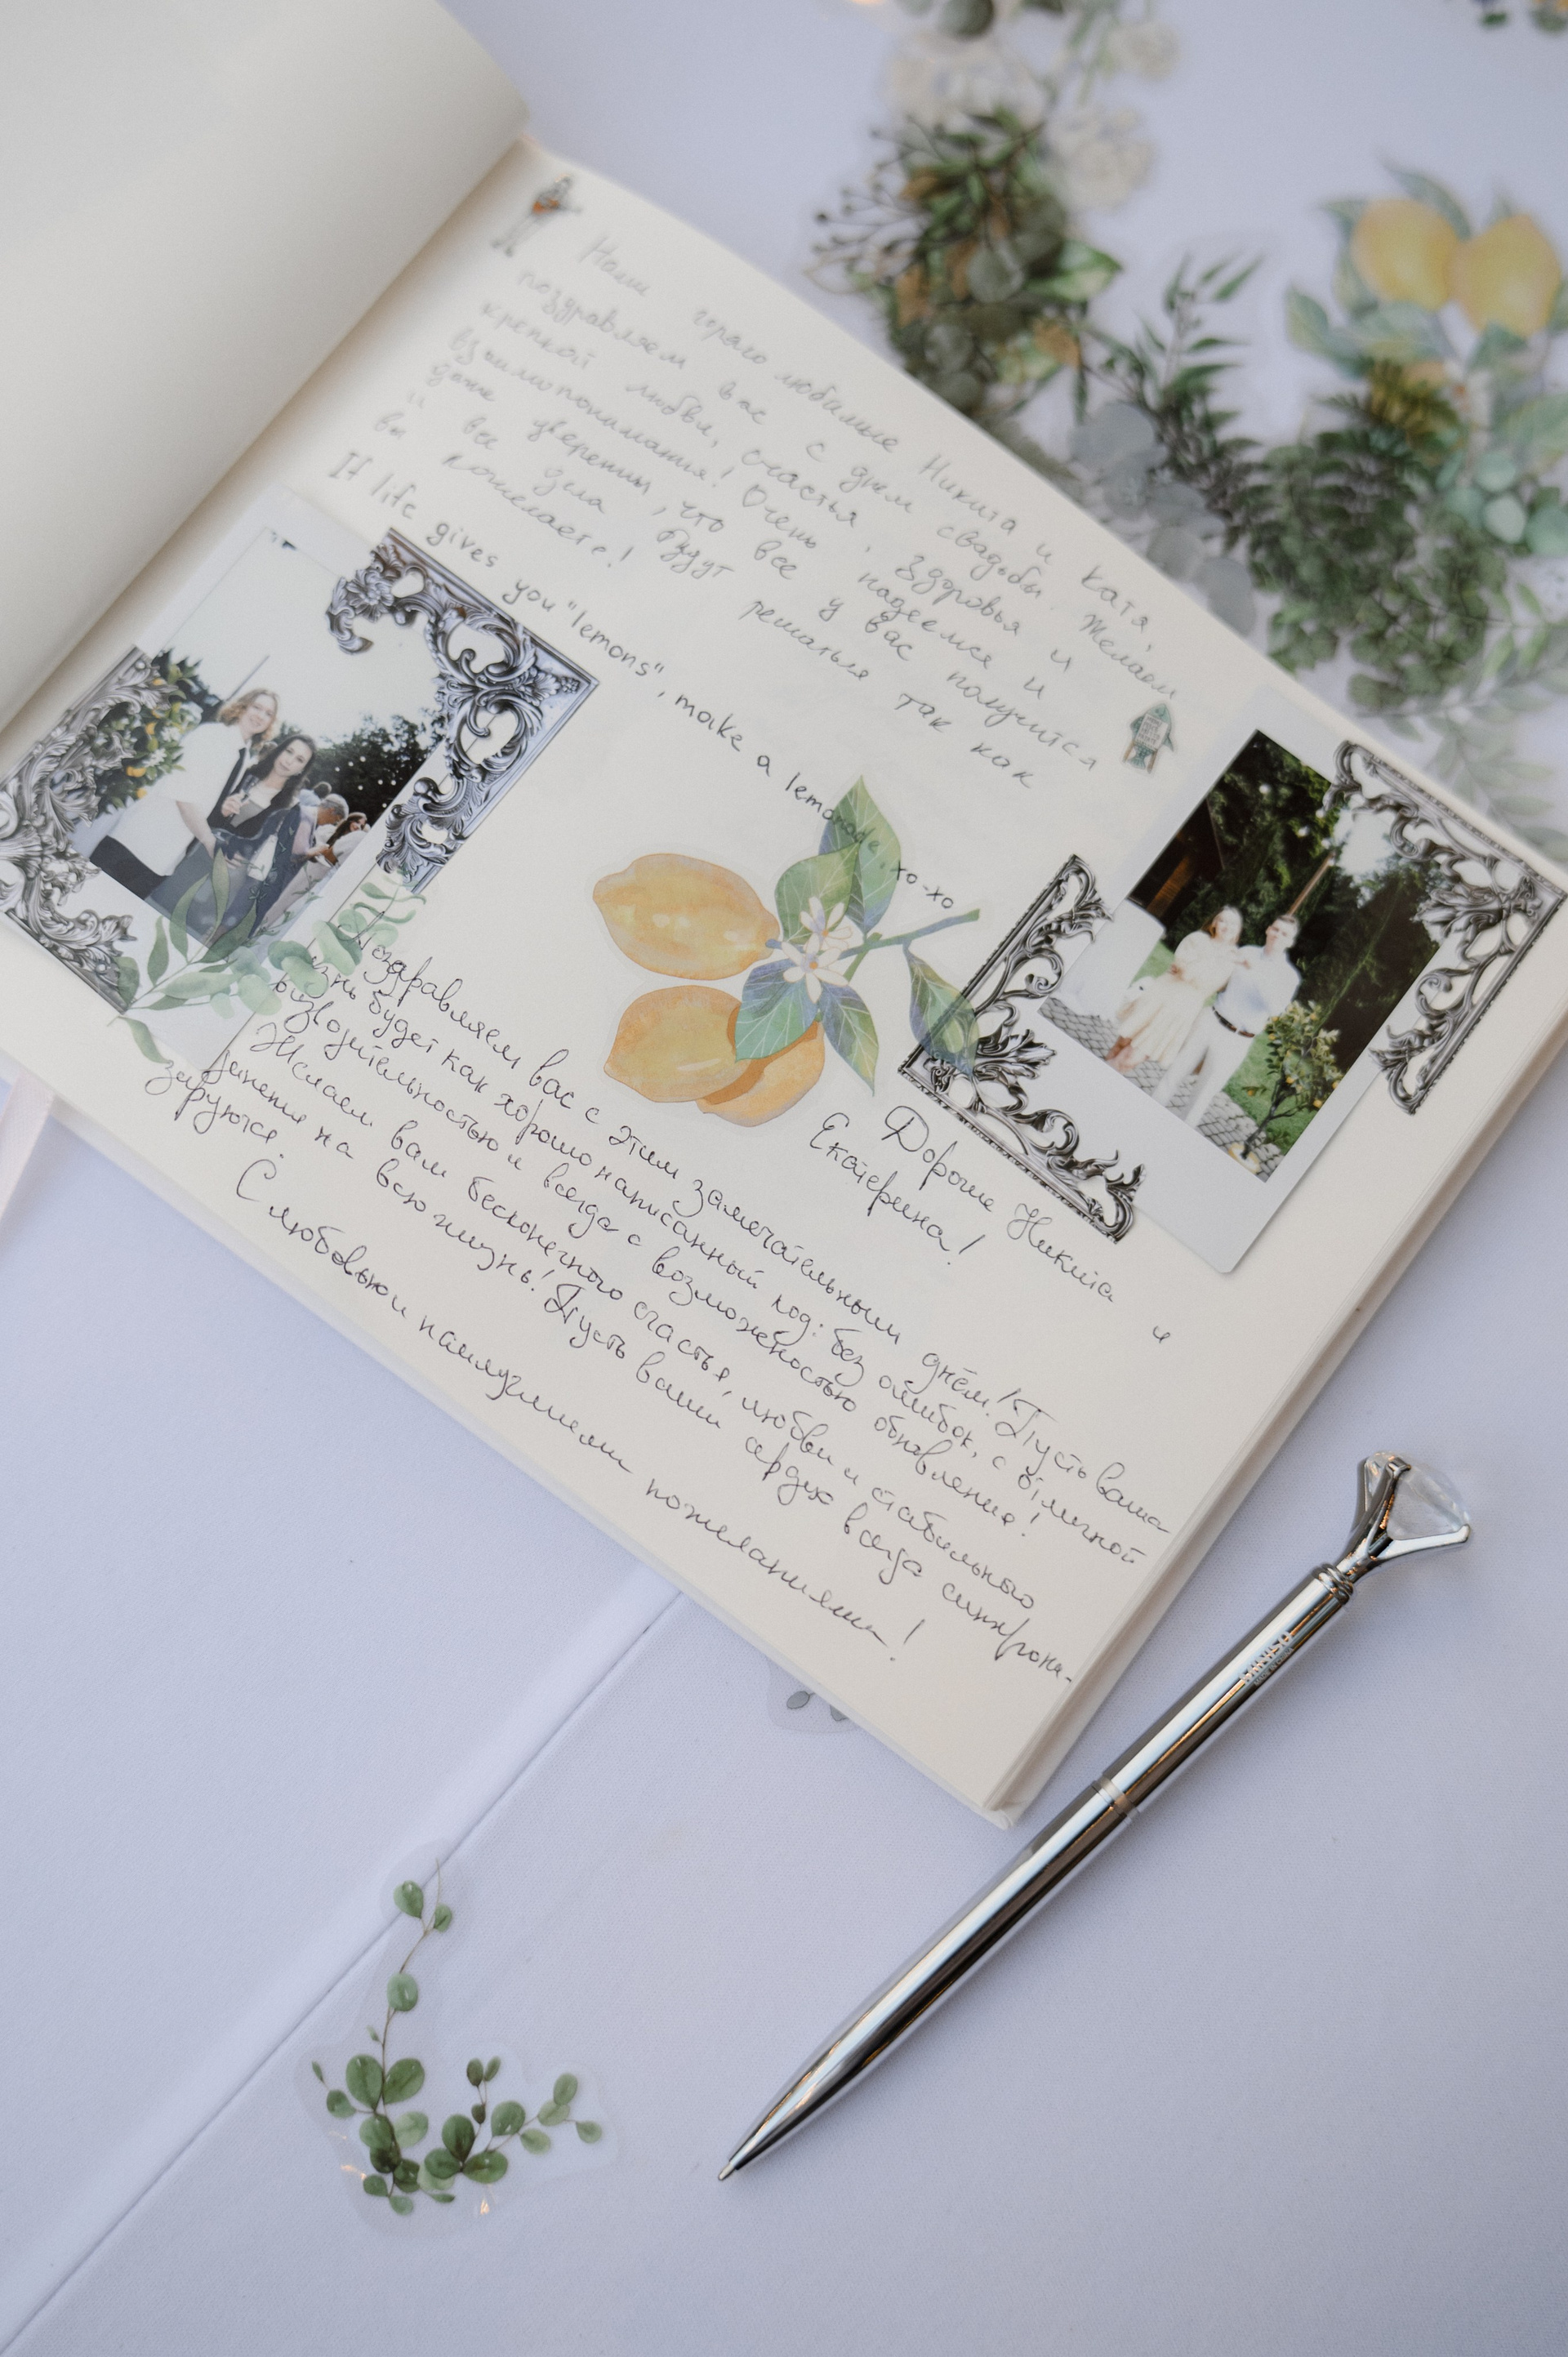 Наши горяго любимые Никита и Катя,
поздравляем вас с днем свадьбы. Желаем
крепкой любви, счастья, здоровья и
взаимопонимания! Очень надеемся и
даже уверенны, что все у вас получится
и все дела будут решаться так как
вы пожелаете!
If life gives you "lemons", make a lemonade. xo-xo
Дорогие Никита и
Екатерина!
Поздравляем вас с этим замечательным днём! Пусть ваша
жизнь будет как хорошо написанный код: без ошибок, с отличной
производительностью и всегда с возможностью обновления!
Желаем вам бесконечного счастья, любви и стабильного
на всю жизнь! Пусть ваши сердца всегда синхрони-
зируются.
С любовью и наилучшими пожеланиями!